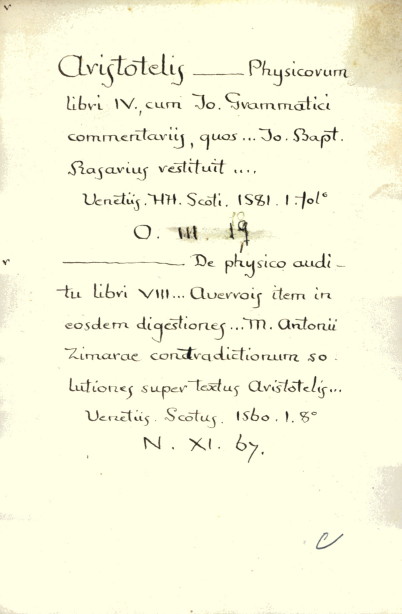 v
Aristotelis —— Physicorum
libri IV., cum Io. Grammatici
commentariis, quos ... Io. Bapt.
Rasarius restituit ....
Venetiis. HH. Scoti. 1581. 1. folº
O. III. 19
v ———— De physico audi-
tu libri VIII ... Averrois item in
eosdem digestiones ... M. Antonii
Zimarae contradictionum so-
lutiones super textus Aristotelis ...
Venetiis. Scotus. 1560. 1. 8º
N. XI. 67.